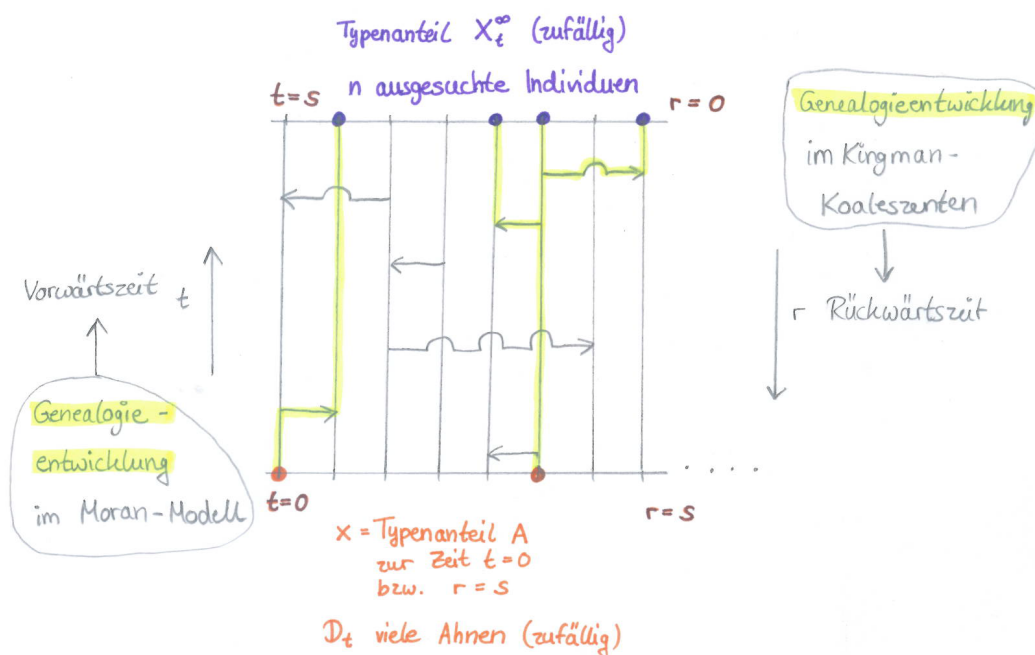 Typenanteil X_t^∞ (zufällig)
n ausgesuchte Individuen
t=s
r=0
Genealogieentwicklung
im Kingman-
Koaleszenten
Vorwärtszeit t
r Rückwärtszeit
Genealogie-
entwicklung
im Moran-Modell
t=0
r=s
. . . .
x = Typenanteil A
zur Zeit t=0
bzw. r=s
D_t viele Ahnen (zufällig)